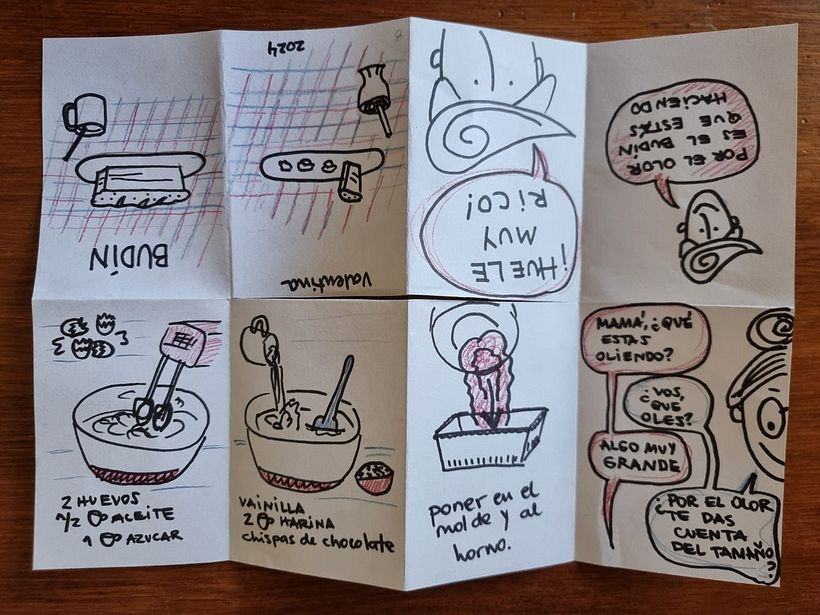 BUDÍN
Valentina
2024
¡HUELE
MUY
RICO!
POR EL OLOR
ES EL BUDÍN
QUE ESTÁS
HACIENDO
2 HUEVOS
1/2 ACEITE
1 AZUCAR
VAINILLA
2 HARINA
chispas de chocolate
poner en el
molde y al
horno.
MAMÁ, ¿QUÉ
ESTAS
OLIENDO?
¿VOS,
¿QUE
OLES?
ALGO MUY
GRANDE
¿POR EL OLOR
TE DAS
CUENTA
DEL TAMAÑO
?